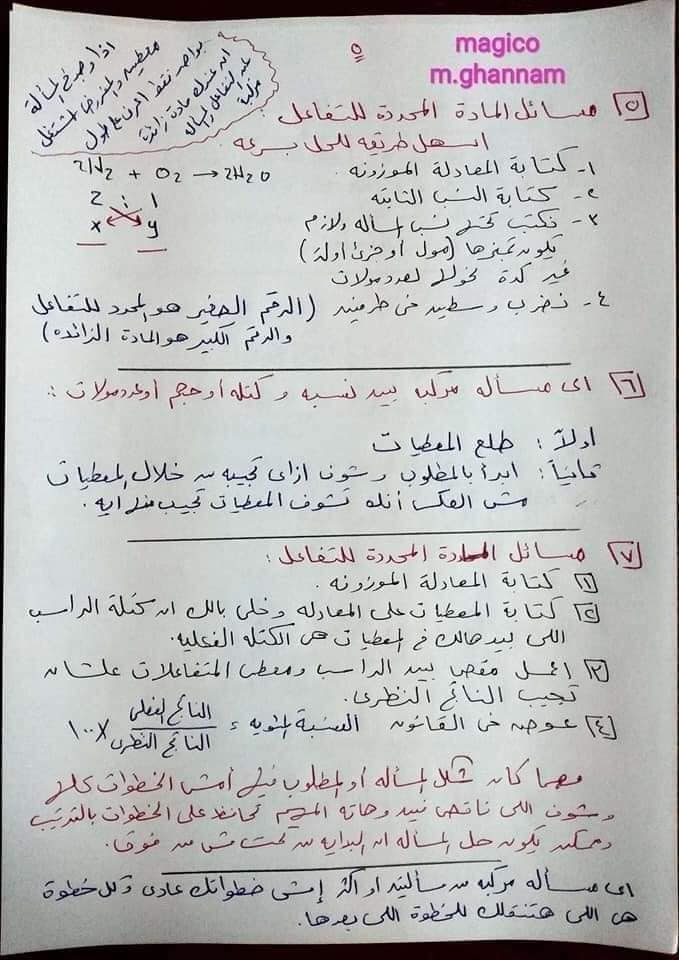 magico
m.ghannam
٥
اذا وجد فى المسألة
معطيين والمفروض
مادة زائدة
مركبة
٥ مسائل المادة المحددة للتفاعل :
اسهل طريقه للحل بسرعه
١- كتابة المعادلة الموزونه
2H2 + O2 → 2H2O
٢- كتابة النسب الثابته
2 : 1
٣- نكتب تحتها نسب المسأله ولازم
x y
يكون تمييزها (مول أو جزئ أو لتر)
غير كدة نحولها لعدد مولات
٤- نضرب وسطين فى طرفين (الرقم الصغير هو المحدد للتفاعل
والرقم الكبير هو المادة الزائده)
٦ اى مسأله مركبه بين نسبه و كتله أو حجم أو عدد مولات :
اولاً : طلع المعطيات
ثانياً : ابدأ بالمطلوب وشوف ازاى تجيبه من خلال المعطيات
مش العكس أنك تشوف المعطيات تجيب منها ايه .
٧ مسائل المادة المحددة للتفاعل :
١ كتابة المعادلة الموزونه .
٢ كتابة المعطيات على المعادله وخلى بالك ان كتلة الراسب
اللى بيدهالك فى المعطيات هى الكتله الفعليه.
٣ اعمل مقص بين الراسب ومعطى المتفاعلات علشان
تجيب الناتج النظرى.
٤ عوض فى القانون النسبة المئويه = الناتج الفعلى / الناتج النظرى × ١٠٠
مهما كان شكل المسأله أو المطلوب فيها أمشى الخطوات كلها
وشوف اللى ناقص فين وهاته المهم تحافظ على الخطوات بالترتيب
وممكن يكون حل المسأله ان البدايه من تحت مش من فوق.
اى مسأله مركبه من مسألتين او اكثر إمشى خطواتك عادى وكل خطوة
هى اللى هتنقلك للخطوة اللى بعدها.